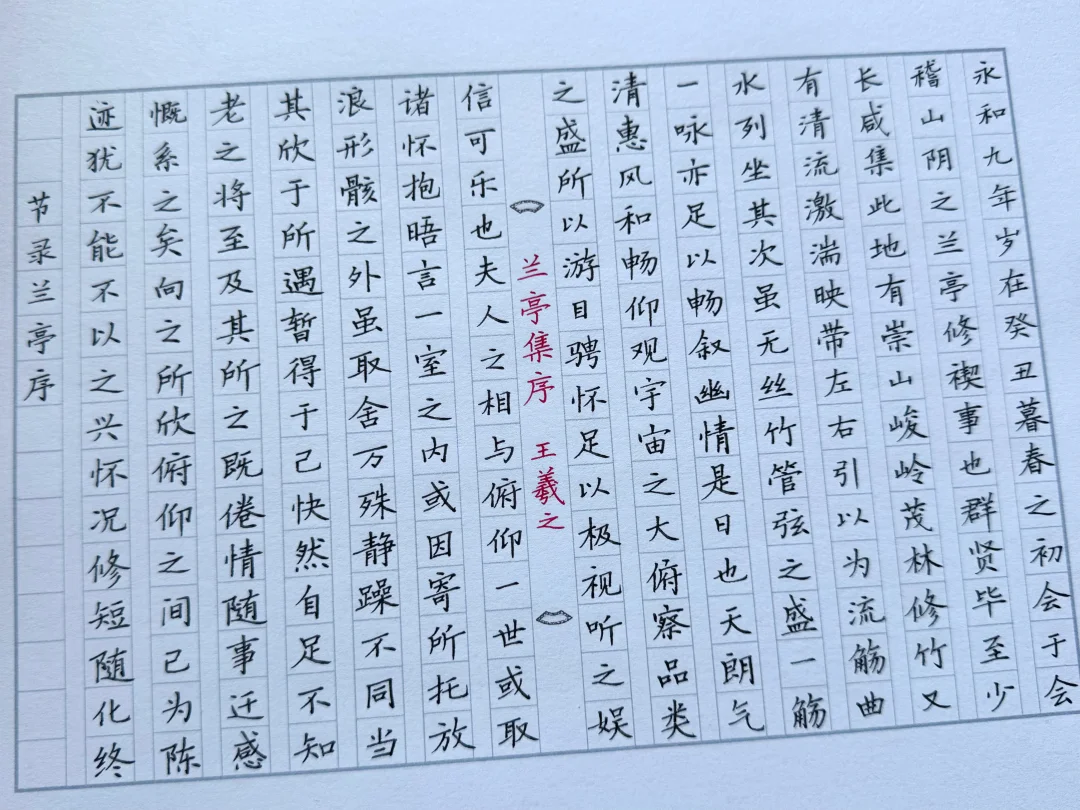 永和九年岁在癸丑暮春之初会于会
稽山阴之兰亭修禊事也群贤毕至少
长咸集此地有崇山峻岭茂林修竹又
有清流激湍映带左右引以为流觞曲
水列坐其次虽无丝竹管弦之盛一觞
一咏亦足以畅叙幽情是日也天朗气
清惠风和畅仰观宇宙之大俯察品类
之盛所以游目骋怀足以极视听之娱
兰亭集序 王羲之
信可乐也夫人之相与俯仰一世或取
诸怀抱晤言一室之内或因寄所托放
浪形骸之外虽取舍万殊静躁不同当
其欣于所遇暂得于己快然自足不知
老之将至及其所之既倦情随事迁感
慨系之矣向之所欣俯仰之间已为陈
迹犹不能不以之兴怀况修短随化终
节录兰亭序